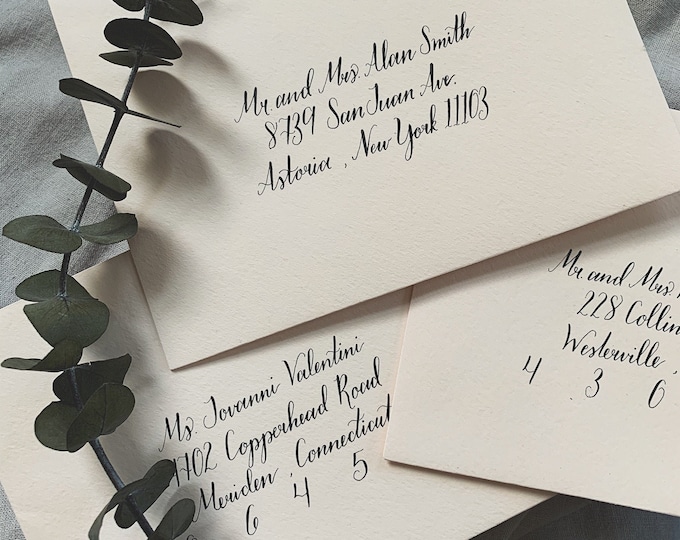 Mr. and Mrs. Alan Smith
8739 San Juan Ave.
Astoria , New York 11103
Mr. and Mrs.
228 Collin
Westerville ,
4 3 6
Ms. Jovanni Valentini
1702 Copperhead Road
Meriden , Connecticut
6 4 5